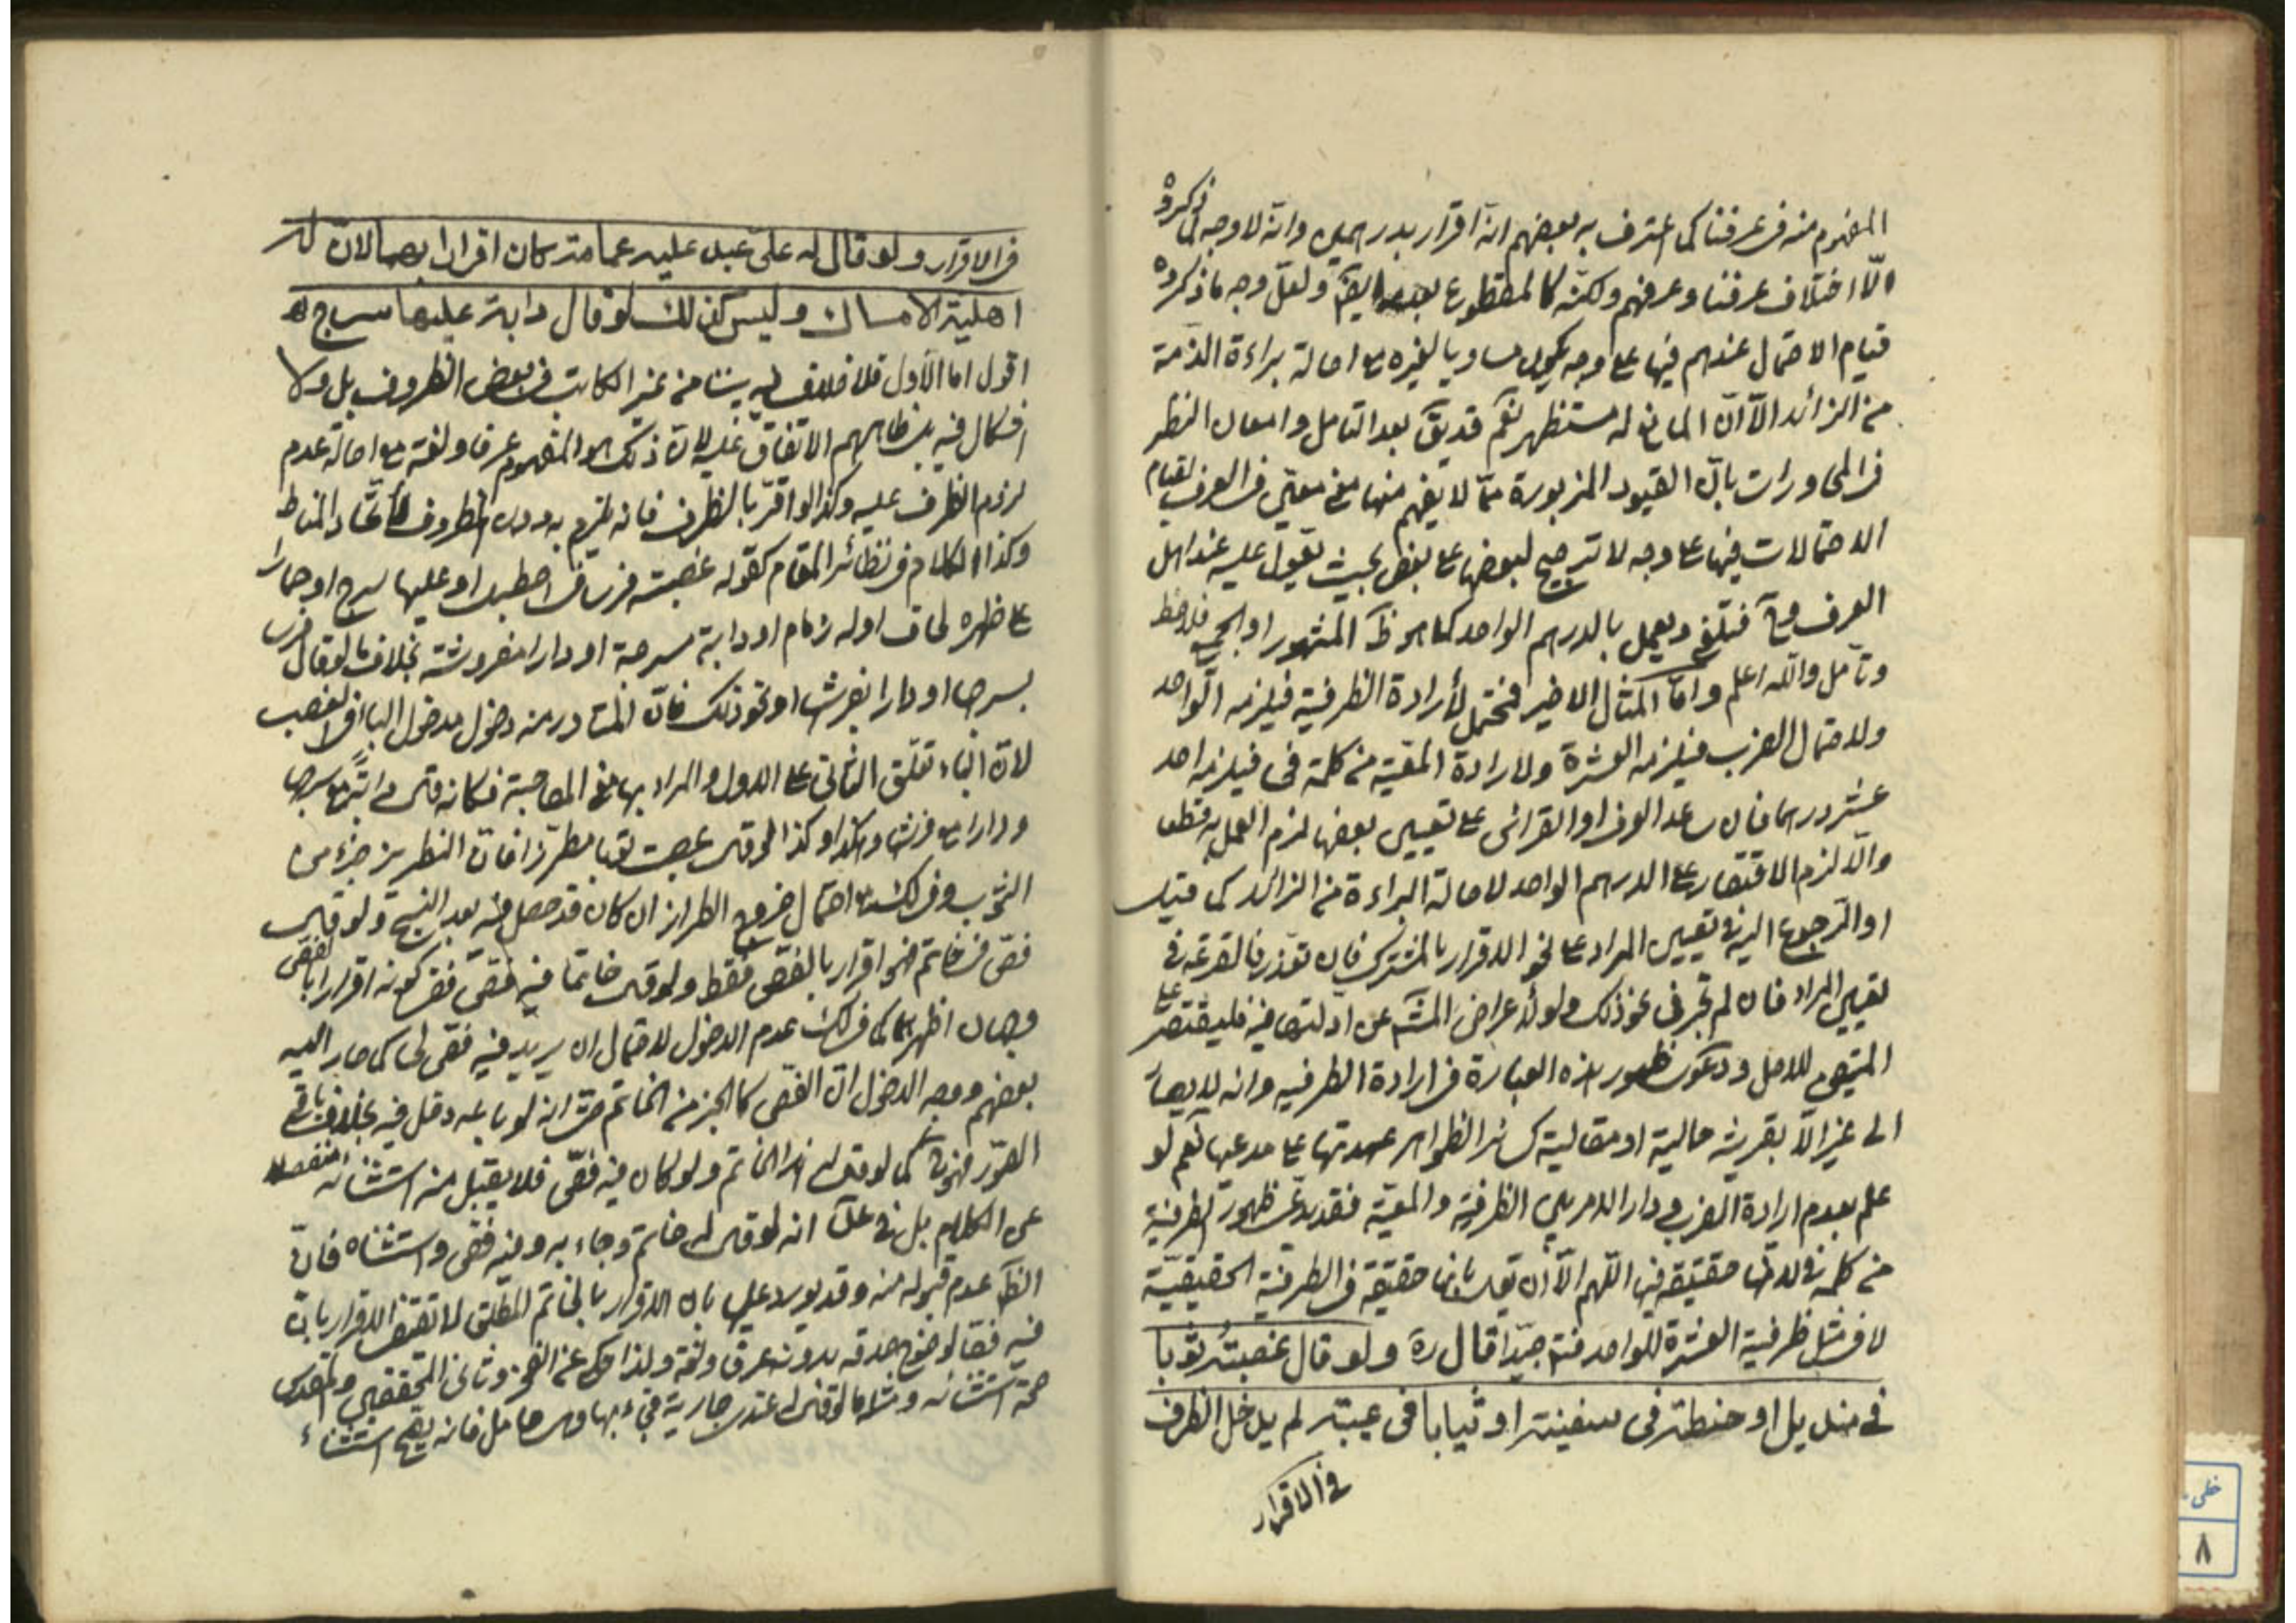 المفهوم منه في عرفنا كما اعترف به بعضهم انه اقرار بدرهمين وانه لا وجه لما ذكروه
الّا اختلاف عرفنا وعرفهم ولكنه كالمقطوع بعدمه ايضا ولعل وجه ما ذكروه
قيام الاحتمال عندهم فيها على وجه يكون مساويا لغيره مع اصالة براءة الذمة
من الزائد الّا انّ المانع له مستظهر نعم قد يقَ بعد التامل وامعان النظر
في المحاورات بانّ القيود المزبورة ممّا لا يفهم منها معنى معيّن في العرف لقيام
الاحتمالات فيها على وجه لا ترجيح لبعضها على بعض بحيث يعول عليه عند اهل
العرف وح فتلغى ويعمل بالدرهم الواحد كما هو ظَ المشهور او المجمع فلاحظ
وتأمل والله اعلم وامّا المثال الاخير فمحتمل لأرادة الظرفية فيلزمه الواحد
ولاحتمال الضرب فيلزمه العشرة ولارادة المعيّة من كلمة في فيلزمه احد
عشر درهما فان ساعد العرف او القرائن على تعيين بعضها لزم العمل به قطعا
والّا لزم الاقتصار على الدرهم الواحد لاصالة البراءة من الزائد كما قيل
او الرجوع اليه في تعيين المراد على نحو الاقرار بالمشترك فان تعذر فالقرعة في
تعيين المراد فان لم تجر في نحو ذلك ولو لأعراض عن ادلتها فيه فليقتصر على
المتيقن للاصل ودعوى ظهور هذه العبارة في ارادة الظرفيه وانه لا يصار
الى غير الّا بقرينه حالية او مقالية كسائر الظواهر عهدتها على مدعيها نعم لو
علم بعدم ارادة الضرب ودار الامر بين الظرفية والمعيّة فقد يدعى ظهور الظرفية
من كلمة في لانّها حقيقة فيها اللّهم الّا أن يقال بانها حقيقة في الظرفية الحقيقيّة
لا في مثل ظرفية العشرة للواحد فتأمل جيّدا قال رهَ ولو قال غصبتُه ثوبا
في منديل او حنطة في سفينة او ثيابا في عيبة لم يدخل الظرف
في الاقرار
في الاقرار ولو قال له علىّ عبد عليه عمامة كان اقرارا بهما لان له
اهلية الامساك وليس كذلك لو قال دابة عليها سرج اه
اقول اما الأول فلا خلاف فيه بيننا من غير الكاتب في بعض الظروف بل ولا
اشكال فيه بل ظاهرهم الاتفاق عليه لان ذلك هو المفهوم عرفا ولغة مع اصالة عدم
لزوم الظرف عليه وكذا لو اقرّ بالظرف فانه يلزم به دون المظروف لأتحاد المناط
وكذا الكلام في نظائر المقام كقوله غصبته فرسا في اصطبل او عليها سرج او حمارا
على ظهره لحاف او له زمام او دابة مسرجة او دارا مفروشة بخلاف ما لو قال فرس
بسرجها او دارا بفرشها او نحو ذلك فانّ المتبادر منه دخول مدخول الباء في الغصب
لانّ الباء تعلّق الثاني على الاول والمراد بها مع المصاحبة فكانه قال دابّة مع سرجها
ودارا مع فرشها وهكذا وكذا لو قال غصبت ثوبا مطرزا فانّ التطريز جزء من
الثوب وفي احتمال خروج الطراز ان كان قد حصل فيه بعد النسج ولو قال
فصّ في خاتم فهو اقرار بالفصّ فقط ولو قال خاتما فيه فصّ ففي كونه اقرارا بالفصّ
وجهان اظهرهما كما في عدم الدخول لاحتمال ان يريد فيه فصّ لي كما صار اليه
بعضهم ووجه الدخول انّ الفصّ كالجزء من الخاتم حتى انه لو باعه دخل فيه بخلاف باقي
الصّور كما لو قال هذا الخاتم ولو كان فيه فصّ فلا يقبل منه استثنائه منفصلا
عن الكلام بل في انه لو قال له خاتم وجاء به وفيه فصّ واستثناه فانّ
الظَ عدم قبوله منه وقد يورد عليه بان الاقرار بالخاتم المطلق لا تقتضي الاقرار بانّ
فيه فصّا لوضوح صدقه بدونه عرفا ولغة ولذا حكى عن الفخر وثاني المحققين والمقدس
صحة استثنائه ومثله ما لو قال له عندي جارية فجاء بها وهي حامل فانه يصح استثناء
خطى
٨